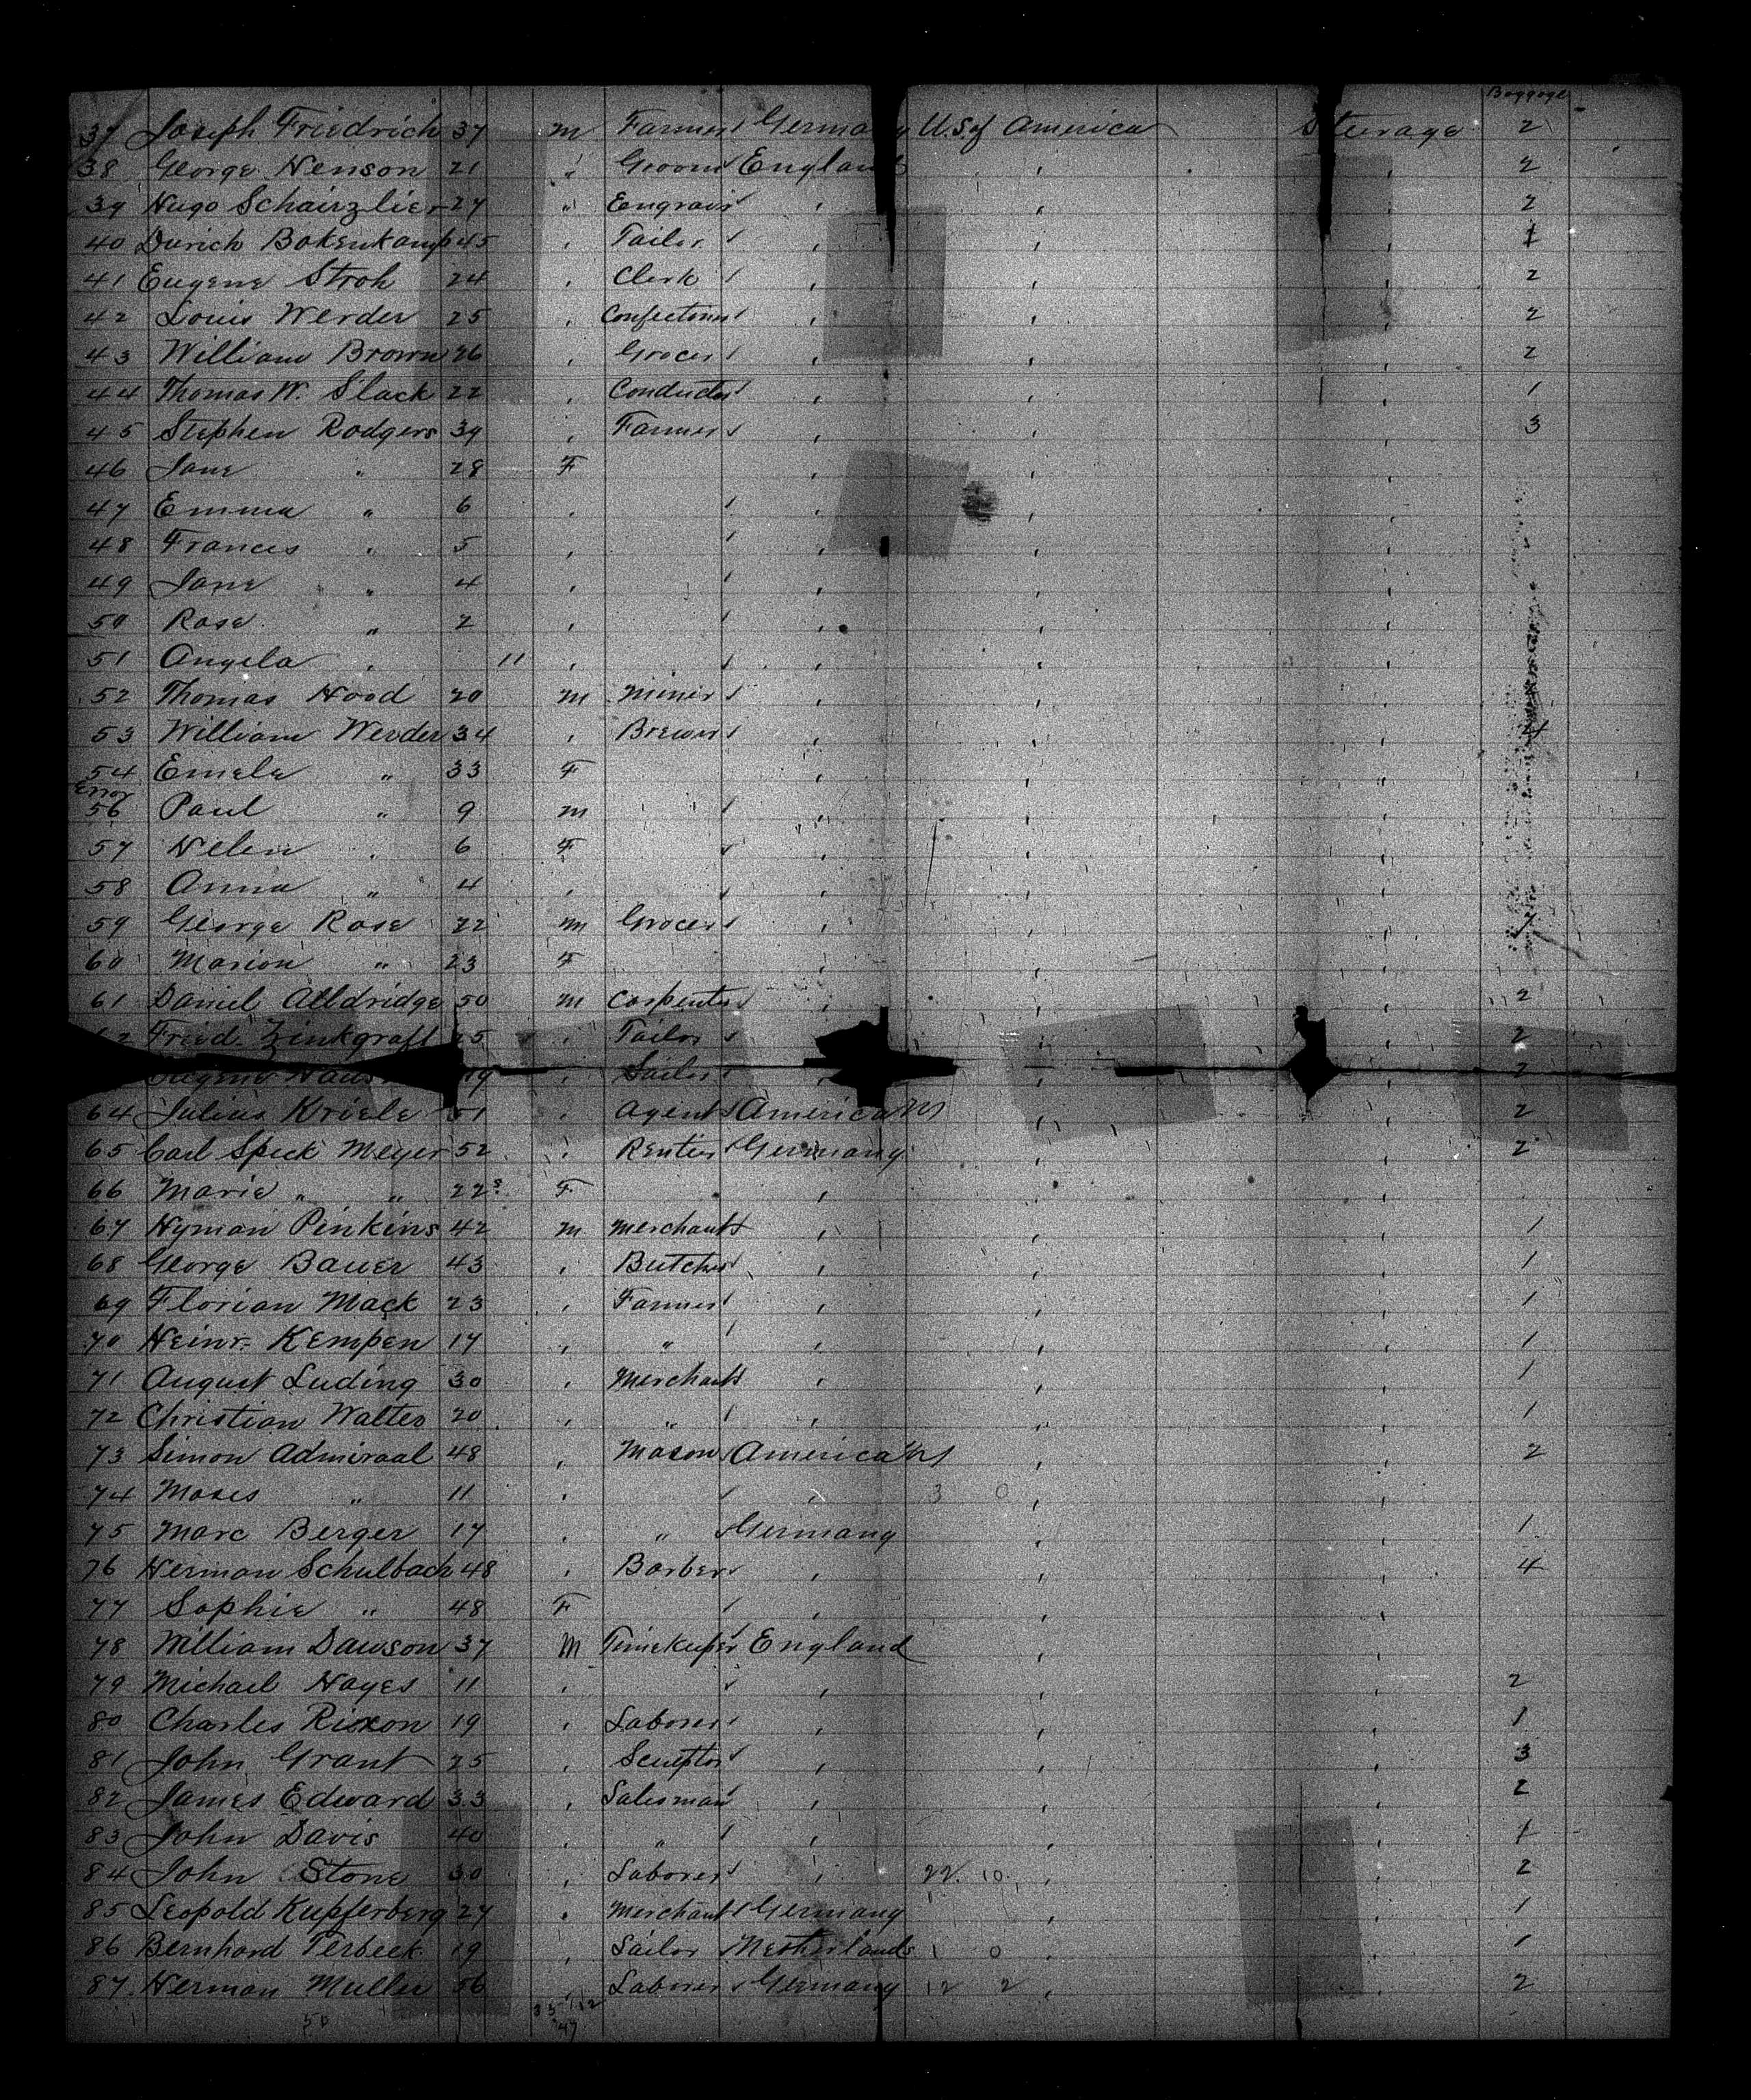 Baggage
37 Joseph Friedrich 37 m Farmer Germany U.S. of America Steerage 2
38 George Henson 21 " Groom England " " 2
39 Hugo Schairzlier 27 " Engraver " " " 2
40 Durich Bokenkamp 45 " Tailor " " " 1
41 Eugene Stroh 24 " Clerk " " " 2
42 Louis Werder 25 " Confectioner " " " 2
43 William Brown 26 " Grocer " " " 2
44 Thomas W. Slack 22 " Conductor " " " 1
45 Stephen Rodgers 39 " Farmer " " " 3
46 Jane " 28 F " " "
47 Emma " 6 " " " "
48 Frances " 5 " " " "
49 Jane " 4 " " " "
50 Rose " 2 " " " "
51 Angela " 11 " " " "
52 Thomas Hood 20 m Miner " " "
53 William Werder 34 " Brewer " " " 4
54 Emele " 33 F " " "
Error
56 Paul " 9 m " " "
57 Helen " 6 F " " "
58 Anna " 4 " " " "
59 George Rose 22 m Grocer " " "
60 Marion " 23 F " " "
61 Daniel Alldridge 50 m Carpenter " " " 2
2 Fried. Zinkgraff 25 " Tailor " " " 2
Eugene 19 " Sailor " " " 2
64 Julius Kriele 51 " Agent American " " 2
65 Carl Speck Meyer 52 " Rentier Germany " " 2
66 Marie " " 22 F " " "
67 Hyman Pinkins 42 m Merchant " " " 1
68 George Bauer 43 " Butcher " " " 1
69 Florian Mack 23 " Farmer " " " 1
70 Heinr. Kempen 17 " " " " " 1
71 August Luding 30 " Merchant " " " 1
72 Christian Walter 20 " " " " " 1
73 Simon Admiraal 48 " Mason American " " 2
74 Moses " 11 " " 3 0 " "
75 Marc Berger 17 " " Germany " " 1
76 Herman Schulbach 48 " Barber " " " 4
77 Sophie " 48 F " " "
78 William Dawson 37 M Timekeeper England " "
79 Michael Hayes 11 " " " " 2
80 Charles Rixon 19 " Laborer " " " 1
81 John Grant 25 " Sculptor " " " 3
82 James Edward 33 " Salesman " " " 2
83 John Davis 40 " " " " " 1
84 John Stone 30 " Laborer " 22 10 " " 2
85 Leopold Kupferberg 27 " Merchant Germany " " 1
86 Bernhard Terbeek 19 " Sailor Netherlands 1 0 " " 1
87 Herman Muller 56 " Laborer Germany 12 2 " " 2
50 35 12
47